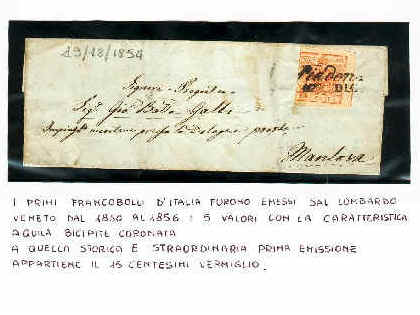 19/12/1854
DIC.
Signore Propriet
Sigr Gio Batta Galli
Mantova
I PRIMI FRANCOBOLLI D'ITALIA FURONO EMESSI DAL LOMBARDO
VENETO DAL 1850 AL 1856 I 5 VALORI CON LA CARATTERISTICA
AQUILA BICIPITE CORONATA
A QUELLA STORICA E STRAORDINARIA PRIMA EMISSIONE
APPARTIENE IL 15 CENTESIMI VERMIGLIO.